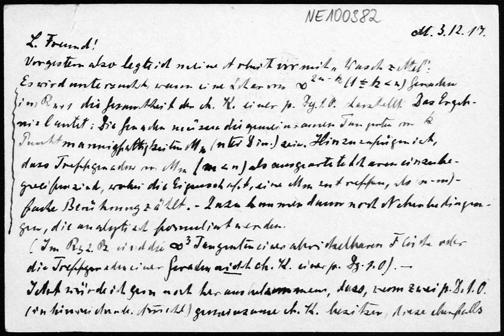 NE100382
M. 3.12.17.
L. Freund!
Vorgestern also legte ich meine Arbeit vor mit „Waschzettel":
Es wird untersucht, wann eine Schar von ∞²ⁿ⁻ᵏ (1≤k<n) Geraden
im Rn, die Gesamtheit der ch. K. einer p. Dgl. O. darstellt. Das Ergeb-
nis lautet: Die Geraden müssen die gemeinsamen Tangenten von k
Punktmannigfaltigkeiten Mn (nter Dim.) sein. Hinzuzufügen ist,
dass Treffgeraden von Mm (m<n) als ausgeartete Scharen einzube-
greifen sind, wobei die Eigenschaft, eine Mm zu treffen, als (n-m)-
fache Berührung zählt. - Dazu kommen dann noch Nebenbedingun-
gen, die analytisch formuliert werden.
(Im R₃ z.B. sind die ∞³ Tangenten einer abwickelbaren Fläche oder
die Treffgeraden einer Geraden nicht ch. K. einer p. Dg. 1. O.) —
Jetzt würde ich gern noch herausbekommen, dass, wenn zwei p. D. 1. O.
gemeinsame ch. K. besitzen, diese ebenfalls